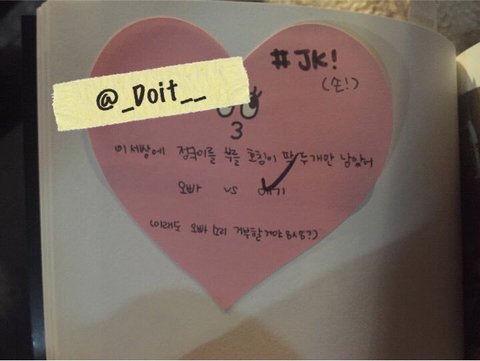 @_Doit__
#JK!
(손!)
3
이 세상에 정국이를 부를 호칭이 딱 두개만 남았어
오빠 vs 애기
(이래도 오빠 소리 거부할거야 응응?)